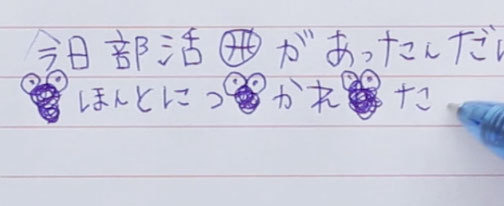 今日部活があったんだけ
ほんとにつかれた